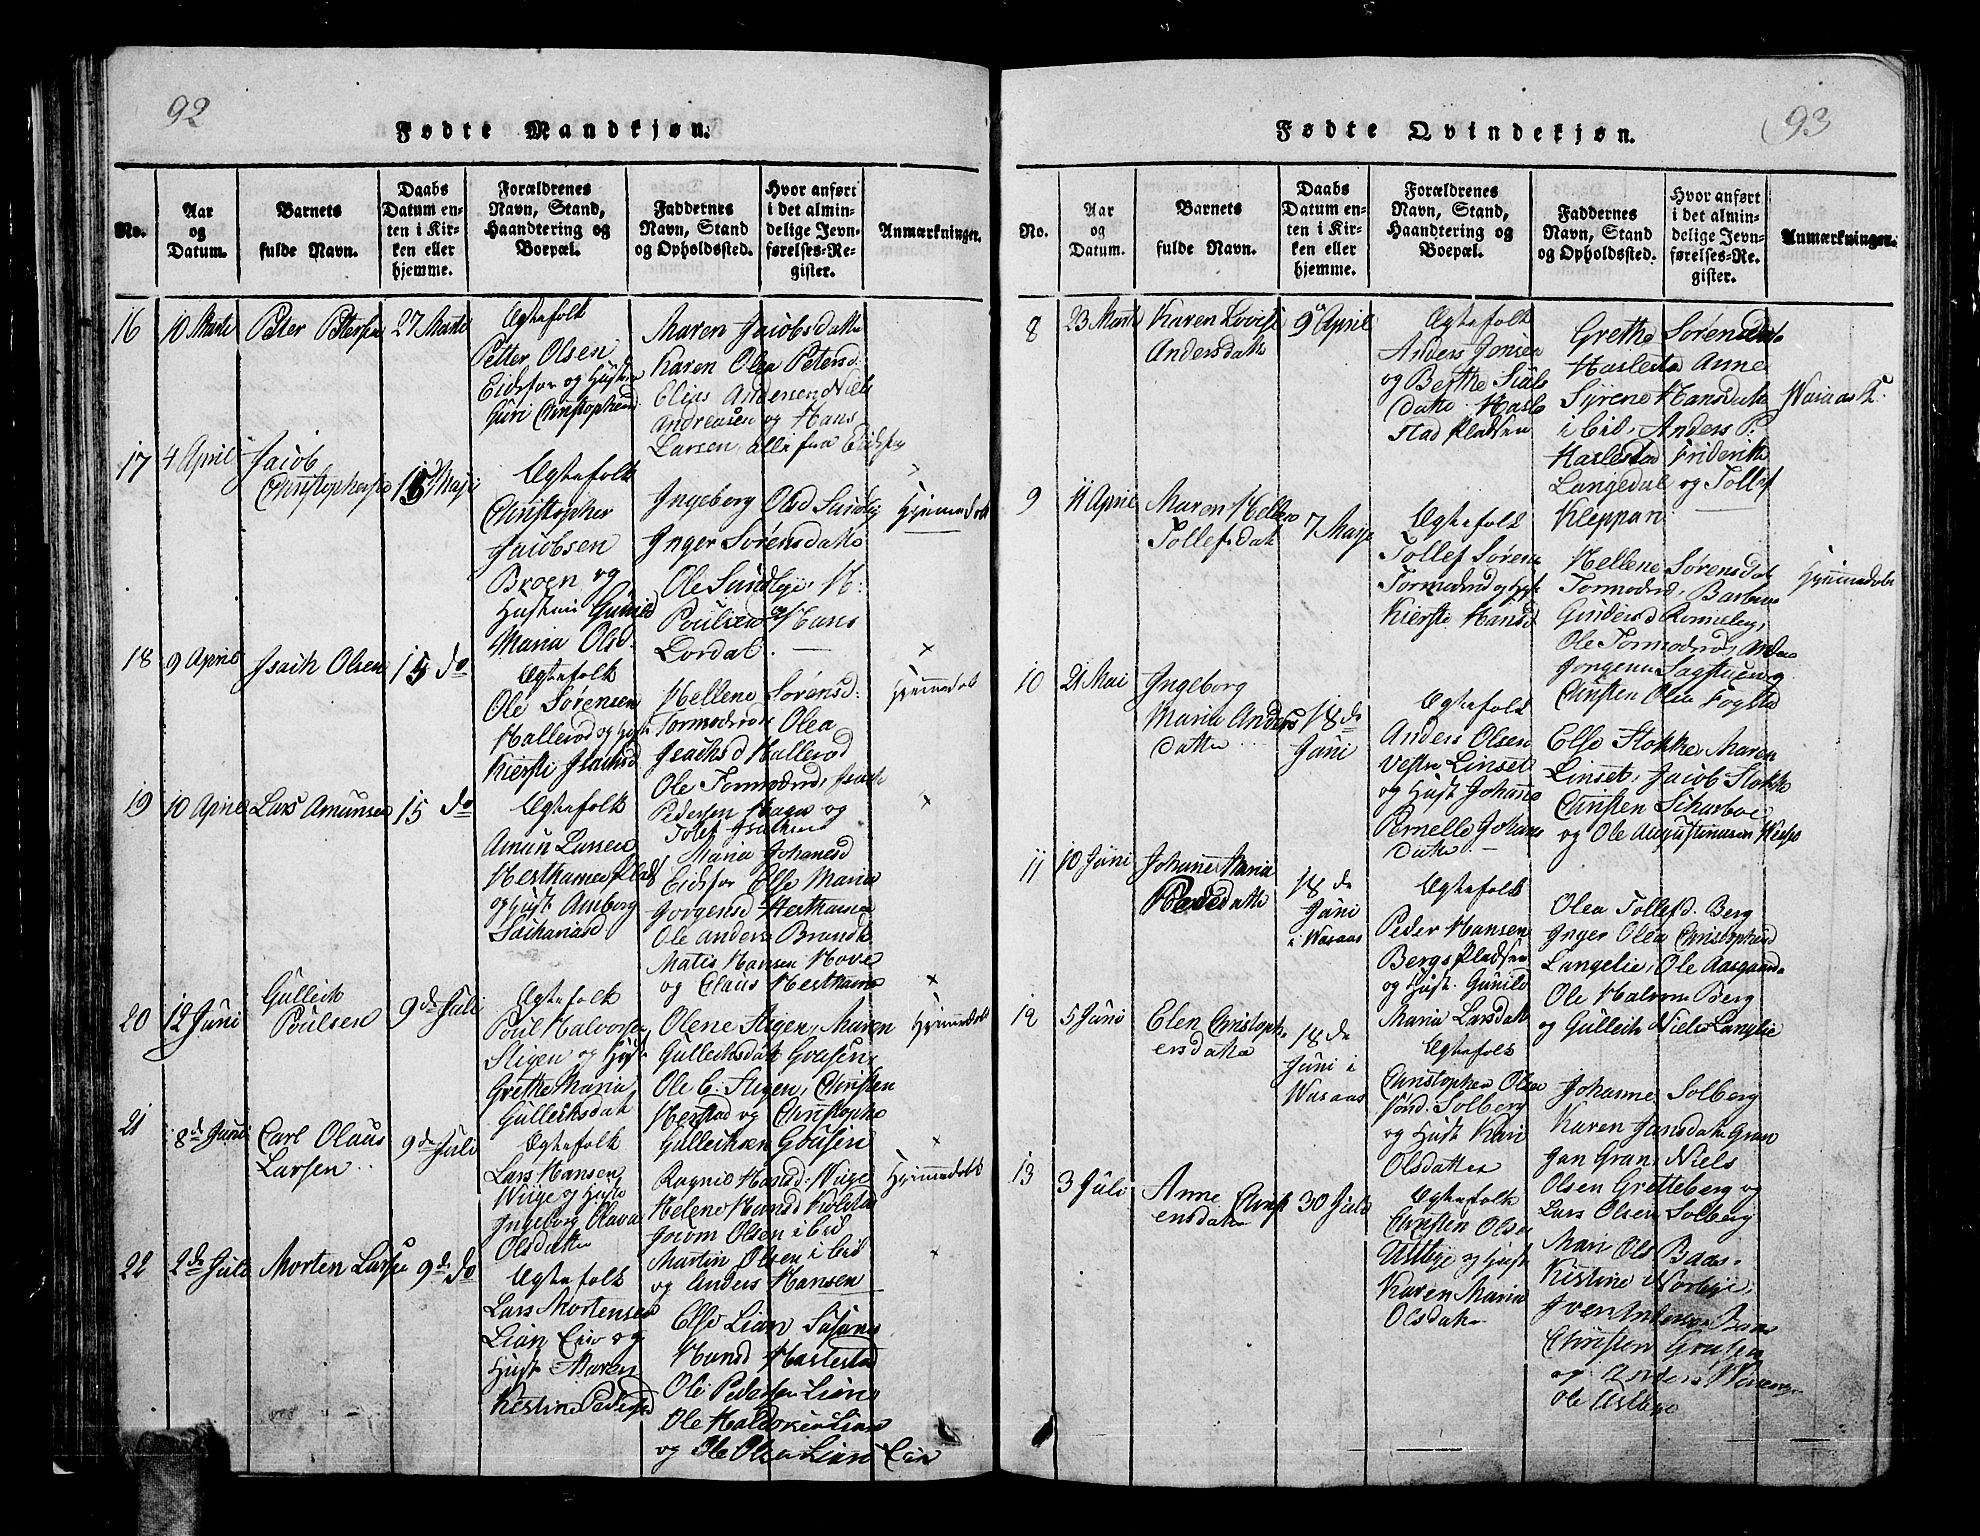 92
Fødte Mandkjøn.
No.
Aar
og
Datum.
Barnets
fulde Navn.
Daabs
Datum en-
ten i Kir-
ken eller
hjemme.
Forældrenes
Navn, Stand,
Haandtering og
Boepæl.
Faddernes
Navn, Stand
og Opholdssted.
Hvor anført
i det almin-
delige Jevn-
førelses-Re-
gister.
Anmærkninger.
16
10 Marti
Peter Petersen
27 Marti
Egtefolk
Petter Olsen
Eidsfor og Hustru
Guri Christophersd
Maren Jacobsdatter
Karen Olea Petersd.
Elias Andersen Niels
Andreasen og Hans
Larsen, alle fra Eidsfor
17
4 April
Jacob
Christophersen
15 Maji
Egtefolk
Christopher
Jacobsen
Broen og
Hustrue Gunild
Maria Olsd.
Ingeborg Olsd Sundbÿ
Inger Sørensdatte
Ole Sundbye, H.
Poulsen og Hans
Lordal.
Hjemmedøbt
18
9 April
Isach Olsen
15 do
Egtefolk
Ole Sørensen
Hallerød og Hust
Kiersti Isachsd
Hellene Sørensd.
Tormodsrød Olea
Isachsd Hallerød
Ole Tormodsrød, Isach
Pedersen Haga og
Tolef Isachsen
x
Hjemmedøbt
19
10 April
Lars Amunsen
15 do
Egtefolk
Amun Larsen
Hesthammer Plads
og Hust. Amborg
Sachariasd
Maria Johanesd
Eidsfor Else Maria
Jorgensd Hesthamer
Ole Anders Brandt
Matis Hansen Hove
og Claus Hesthamer
x
20
12 Juni
Gullech
Poulsen
9 de Juli
Egtefolk
Poul Halvorsen
Stigen og Hust
Grethe Maria
Gullechsdat
Olene Stigen, Maren
Gullechsdat Graasen,
Ole C. Stigen, Christen
Herstad og Christopher
Gullechsen Graasen
x
Hjemmedøbt
21
8 d Juni
Carl Olaus
Larsen
9 de Juli
Egtefolk
Lars Hansen
Wiige og Hust
Ingeborg Olava
Olsdatter
Ragnil Hansd. Wiige
Helene Hansd
Jocom Olsen ibid
Martin Olsen ibid
og Anders Hansen
x
Hjemmedøbt
22
2 de Juli
Morten Larsen
9 de do
Egtefolk
Lars Mortensen
Lian Eier og
Hust. Maren
Kestine Pedersd
Else Lian Susane
Hansd Haslestad
Ole Pedersen Lian
Ole Haldorsen Lian
og Ole Olsen Lian Eier
x
93
Fødte Qvindekjøn.
No.
Aar
og
Datum.
Barnets
fulde Navn.
Daabs
Datum en-
ten i Kir-
ken eller
hjemme.
Forældrenes
Navn, Stand,
Haandtering og
Boepæl.
Faddernes
Navn, Stand
og Opholdssted.
Hvor anført
i det almin-
delige Jevn-
førelses-Re-
gister.
Anmærkninger.
8
23 Marti
Karen Lovise
Andersdatte
9 April
Egtefolk
Anders Jonsen
og Berthe Siuls
datte. Hasle
stad Pladsen
Grethe Sørensdatte
Haslestad Anne
Syrene Hansdatte
ibid, Anders P.
Haslestad Friderik
Langedal og Tollef
Kleppan
Wasaas K.
9
11 April
Maren Hellene
Tollefsdat
7 Maji
Egtefolk
Tollef Sørens
Tormodsrød og Hust
Kiersti Hansd
Hellene Sørensdat
Tormodsrød, Barbara
Gundersd Rønneberg,
Ole Tormodsrød, Anders
Jorgensen Sagstuen og
Christen Olsen Fogstad
Hjemmedøbt
10
21 Mai
Ingeborg
Maria Anders
datter
18 de
Juni
Egtefolk
Anders Olsen
Vestre Linset
og Hust Johanne
Pernelle Johans
datter
Else Stokke, Maren
Linset, Jacob Stokke
Christen Scharboe
og Ole Augustinusen
11
10 Juni
Johanne Maria
Pedersdatte
18 de
Juni
i Wasaas
Egtefolk
Peder Hansen
Bergs Pladsen
og Hust. Gunild
Maria Larsdatt
Olea Tollefsd. Berg
Inger Olea Christophersd
Langelie, Ole Aasgaarden
Ole Halvorsen Berg
og Gullech Niels Langlie
12
5 Juni
Elen Christoph
ersdatte
18 de
Juni i
Wasaas
Egtefolk
Christopher Olsen
Solberg
og Hust Kari
Olsdatter
Johanne Solberg
Karen Jansdatte Gran
Jan Gran, Niels
Olsen Gretteberg og
Lars Olsen Solberg
13
3 Juli
Anne Christ
ensdatter
30 Juli
Egtefolk
Christen Olsen
Ustbye og Hust
Karen Maria
Olsdatter
Mari Ols Baas.
Kistine Norbye,
Iver Andersen Baas
Christen Graasen
og Anders
Ole Ustbye